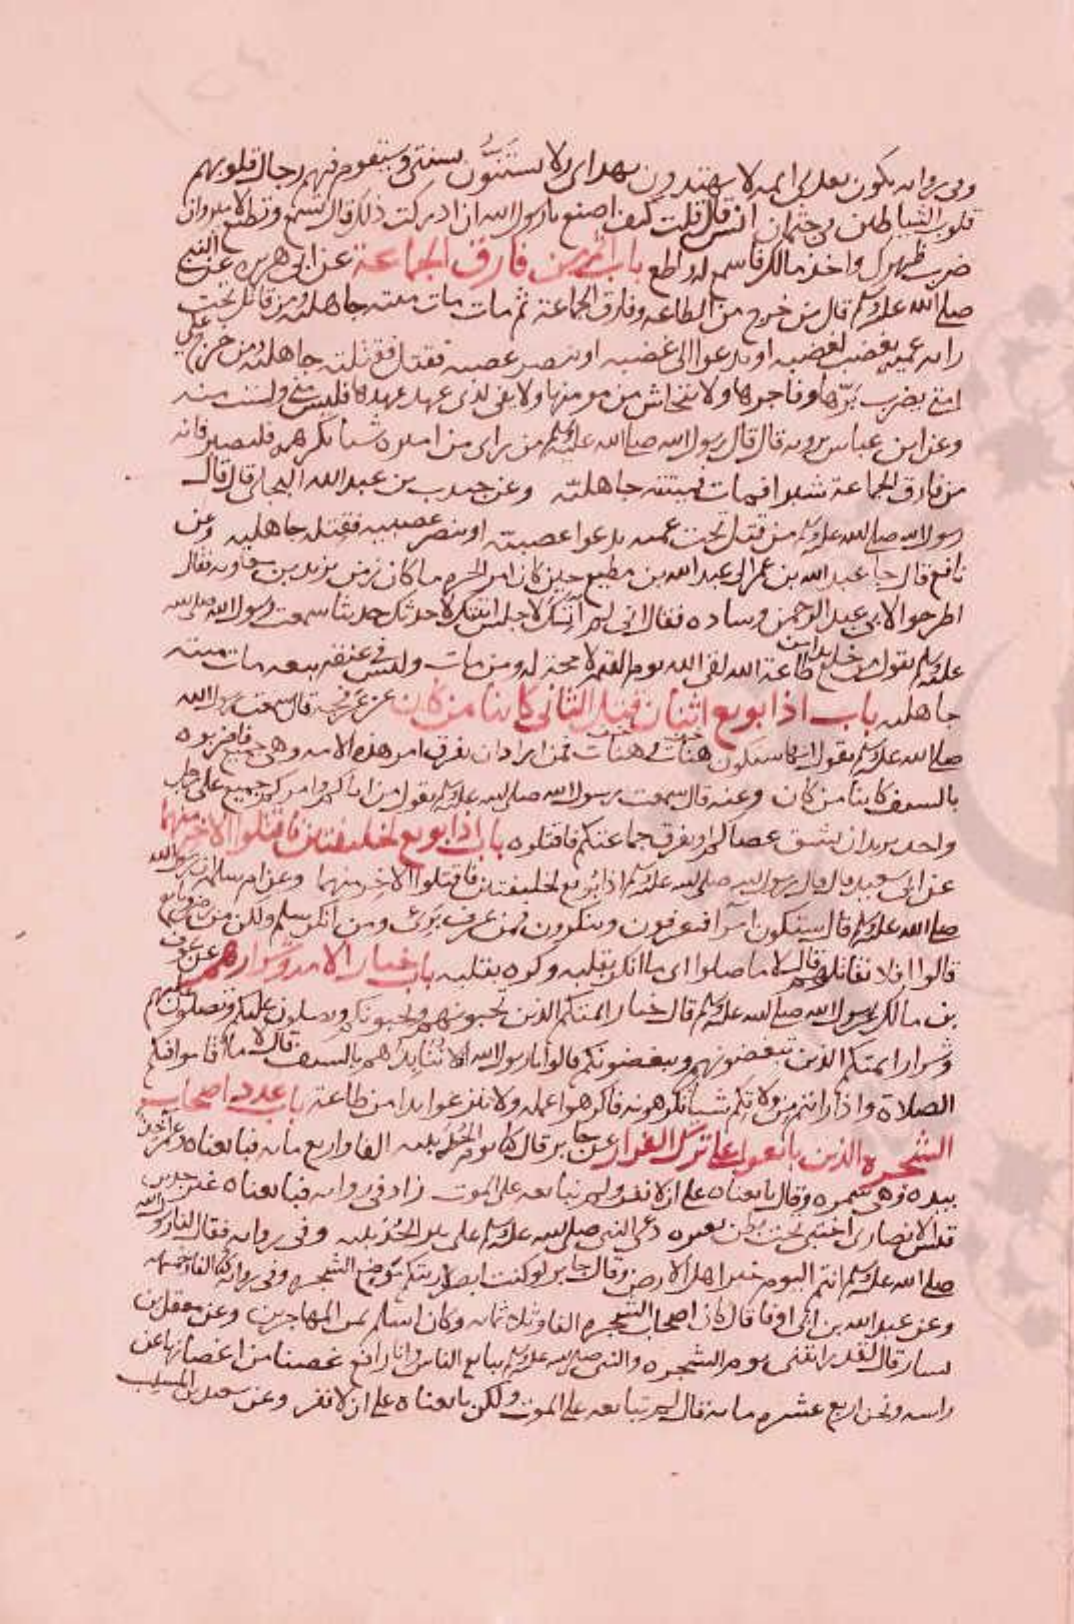 وفي رواية يكون بعدي ايمة لا يهتدون بهداي ولا يستنون بسنتي وسيقوم فيهم رجال قلوبهم
قلوب الشياطين في جثمان انس قال قلت كيف اصنع يا رسول الله ان ادركت ذلك قال تسمع وتطيع للامير وان
ضرب ظهرك واخذ مالك فاسمع له واطع باب فيمن فارق الجماعة عن ابي هريرة عن النبي
صلى الله عليه وسلم قال من خرج من الطاعة وفارق الجماعة ثم مات مات ميتة جاهلية ومن قاتل تحت
راية عمية يغضب لعصبة او يدعوا الى عصبة او ينصر عصبة فقتل فقتلته جاهلية ومن خرج على
امتي يضرب برها وفاجرها ولا يتحاش من مومنها ولا يفي لذي عهد عهدها فليس مني ولست منه
وعن ابن عباس يرويه قال قال رسول الله صلى الله عليه وسلم من راى من اميره شيا يكرهه فليصبر فانه
من فارق الجماعة شبرا فمات فميتته جاهلية وعن جندب بن عبد الله البجلي قال قال
رسول الله صلى الله عليه وسلم من قتل تحت عمية يدعوا عصبية او ينصر عصبية فقتلة جاهلية وعن
نافع قال جا عبد الله بن عمر الى عبد الله بن مطيع حين كان امر الحرة ما كان زمن يزيد بن معاوية فقال
اطرحوا لابي عبد الرحمن وسادة فقال اني لم آتك لاجلس اتيتك لاحدثك حديثا سمعت رسول الله صلى الله
عليه وسلم يقول من خلع يدا من طاعة الله لقي الله يوم القيمة لا حجة له ومن مات وليس في عنقه بيعة مات ميتة
جاهلية باب اذا بويع اثنان فيقتل الثاني كاينا من كان عن عرفجة قال سمعت رسول الله
صلى الله عليه وسلم يقول انها ستكون هنات وهنات فمن اراد ان يفرق امر هذه الامة وهي جميع فاضربوه
بالسيف كاينا من كان وعنه قال سمعت رسول الله صلى الله عليه وسلم يقول من اتاكم وامركم جميع على رجل
واحد يريد ان يشق عصاكم او يفرق جماعتكم فاقتلوه باب اذا بويع لخليفتين فاقتلوا الاخر منهما
عن ابي سعيد قال قال رسول الله صلى الله عليه وسلم اذا بويع لخليفتين فاقتلوا الاخر منهما وعن ام سلمة ان رسول الله
صلى الله عليه وسلم قال ستكون امرا فتعرفون وتنكرون فمن عرف برئ ومن انكر سلم ولكن من رضي وتابع
قالوا افلا نقاتلهم قال لا ما صلوا اي ما انكر بقلبه وكره بقلبه باب خيار الايمة وشرارهم عن عوف
بن مالك عن رسول الله صلى الله عليه وسلم قال خيار ايمتكم الذين تحبونهم ويحبونكم ويصلون عليكم وتصلون عليهم
وشرار ايمتكم الذين تبغضونهم ويبغضونكم قالوا يا رسول الله افلا ننابذهم بالسيف قال لا ما اقاموا فيكم
الصلاة واذا رايتم من ولاتكم شيا تكرهونه فاكرهوا عمله ولا تنزعوا يدا من طاعة باب عدد اصحاب
الشجرة الذين بايعوا على ترك الفرار عن جابر قال كنا يوم الحديبية الفا واربع ماية فبايعناه وعمر آخذ
بيده وهي سمرة وقال بايعناه على ان لا نفر ولم نبايعه على الموت زاد في رواية فبايعناه غير جد بن
قيس الانصاري اختبى تحت بطن بعيره دعى النبي صلى الله عليه وسلم على بير الحديبية وفي رواية فقال لنا رسول الله
صلى الله عليه وسلم انتم اليوم خير اهل الارض وقال جابر لو كنت ابصر لاريتكم موضع الشجرة وفي رواية كنا الفا وخمسماية
وعن عبد الله بن ابي اوفا قال كان اصحاب الشجرة الفا وثلاثماية وكان اسلم ثمن المهاجرين وعن معقل بن
يسار قال لقد رايتني يوم الشجرة والنبي صلى الله عليه وسلم يبايع الناس وانا رافع غصنا من اغصانها عن
راسه ونحن اربع عشرة ماية قال لم نبايعه على الموت ولكن بايعناه على ان لا نفر وعن سعيد بن المسيب